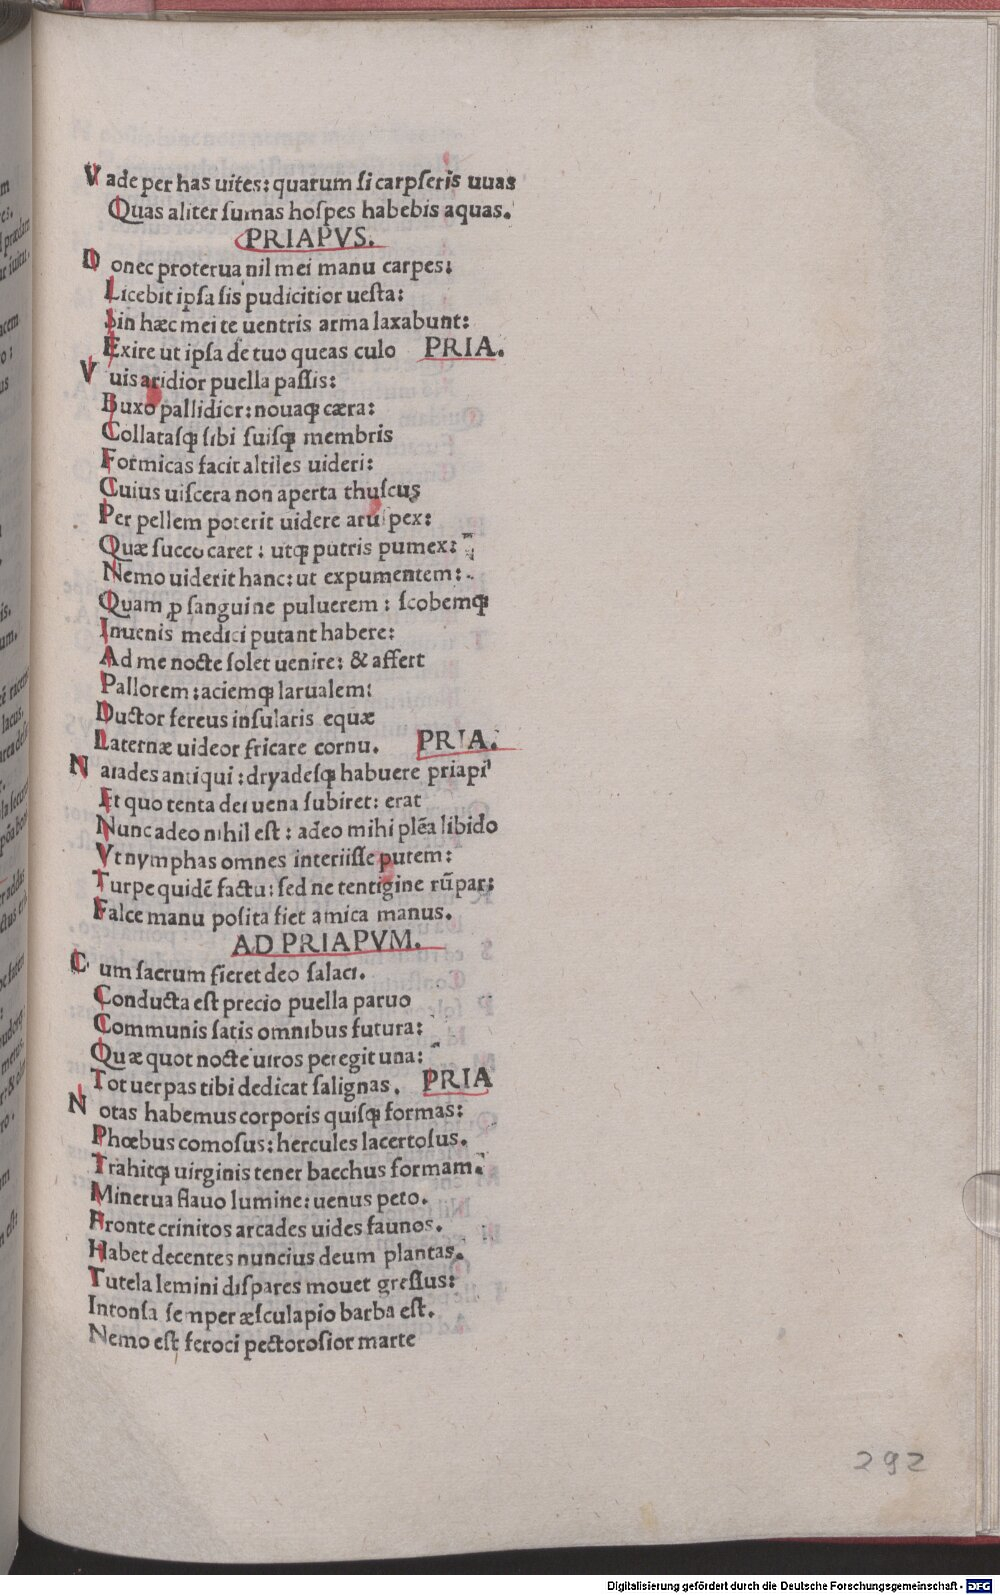 Vade per has uites: quarum ſi carpſeris uuas
Quas aliter ſumas hoſpes habebis aquas.
PRIAPVS.
Donec proterua nil mei manu carpes:
Licebit ipſa ſis pudicitior ueſta:
Sin hæc mei te uentris arma laxabunt:
Exire ut ipſa de tuo queas culo PRIA.
Vuis aridior puella paſſis:
Buxo pallidior: nouaqꝫ cæra:
Collataſqꝫ ſibi ſuiſqꝫ membris
Formicas facit altiles uideri:
Cuius uiſcera non aperta thuſcus
Per pellem poterit uidere aruſpex:
Quæ ſucco caret: utqꝫ putris pumex:
Nemo uiderit hanc: ut expumentem:
Quam ꝓ ſanguine puluerem: ſcobemqꝫ
Inuenis medici putant habere:
Ad me nocte ſolet uenire: & affert
Pallorem: aciemqꝫ larualem:
Ductor fereus inſularis equæ
Laternæ uideor fricare cornu. PRIA.
Naiades antiqui: dryadeſqꝫ habuere priapi
Et quo tenta dei uena ſubiret: erat
Nunc adeo nihil eſt: adeo mihi plēa libido
Vt nymphas omnes interiiſſe putem:
Turpe quidē factu: ſed ne tentigine rūpar:
Falce manu poſita fiet amica manus.
AD PRIAPVM.
Cum ſacrum fieret deo ſalaci.
Conducta eſt precio puella paruo
Communis ſatis omnibus futura:
Quæ quot nocte uiros peregit una:
Tot uerpas tibi dedicat ſalignas. PRIA
Notas habemus corporis quiſqꝫ formas:
Phœbus comoſus: hercules lacertoſus.
Trahitqꝫ uirginis tener bacchus formam.
Minerua flauo lumine: uenus peto.
Fronte crinitos arcades uides faunos.
Habet decentes nuncius deum plantas.
Tutela lemini diſpares mouet greſſus:
Intonſa ſemper æſculapio barba eſt.
Nemo eſt feroci pectoroſior marte
292
Digitalisierung gefördert durch die Deutsche Forschungsgemeinschaft - DFG